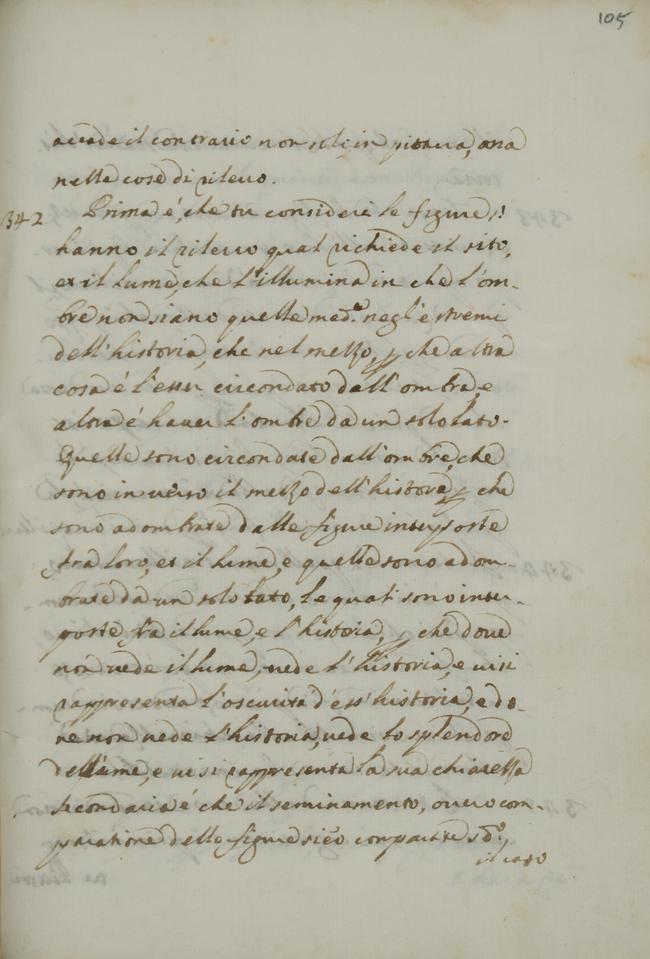 105
accade il contrario non solo in pittura, ma
nelle cose di rilievo.
342 Prima é, che tu consideri le figure s'
hanno il rilievo qual richiede il sito,
et il lume, che l'illumina in che l'om-
bre non siano quelle med.e negl'estremi
dell'historia, che nel mezzo, p che altra
cosa é l'esser circondato dall'ombra, e
altra é haver l'ombre da un solo lato.
Quelle sono circondate dall'ombre, che
sono in verso il mezzo dell'historia, p che
sono adombrate dalle figure interposte
fra loro, et il lume, e quelle sono adom-
brate da un solo lato, le quali sono inter-
poste fra il lume, e l'historia, p che dove
non vede il lume, vede l'historia, e vi si
rappresenta l'oscurità d'ess'historia, e do-
ve non vede l'historia, vede lo splendore
del lume, e vi si rappresenta la sua chiarezza
Secondaria é che il seminamento, overo com-
paratione delle figure compartite
il caso